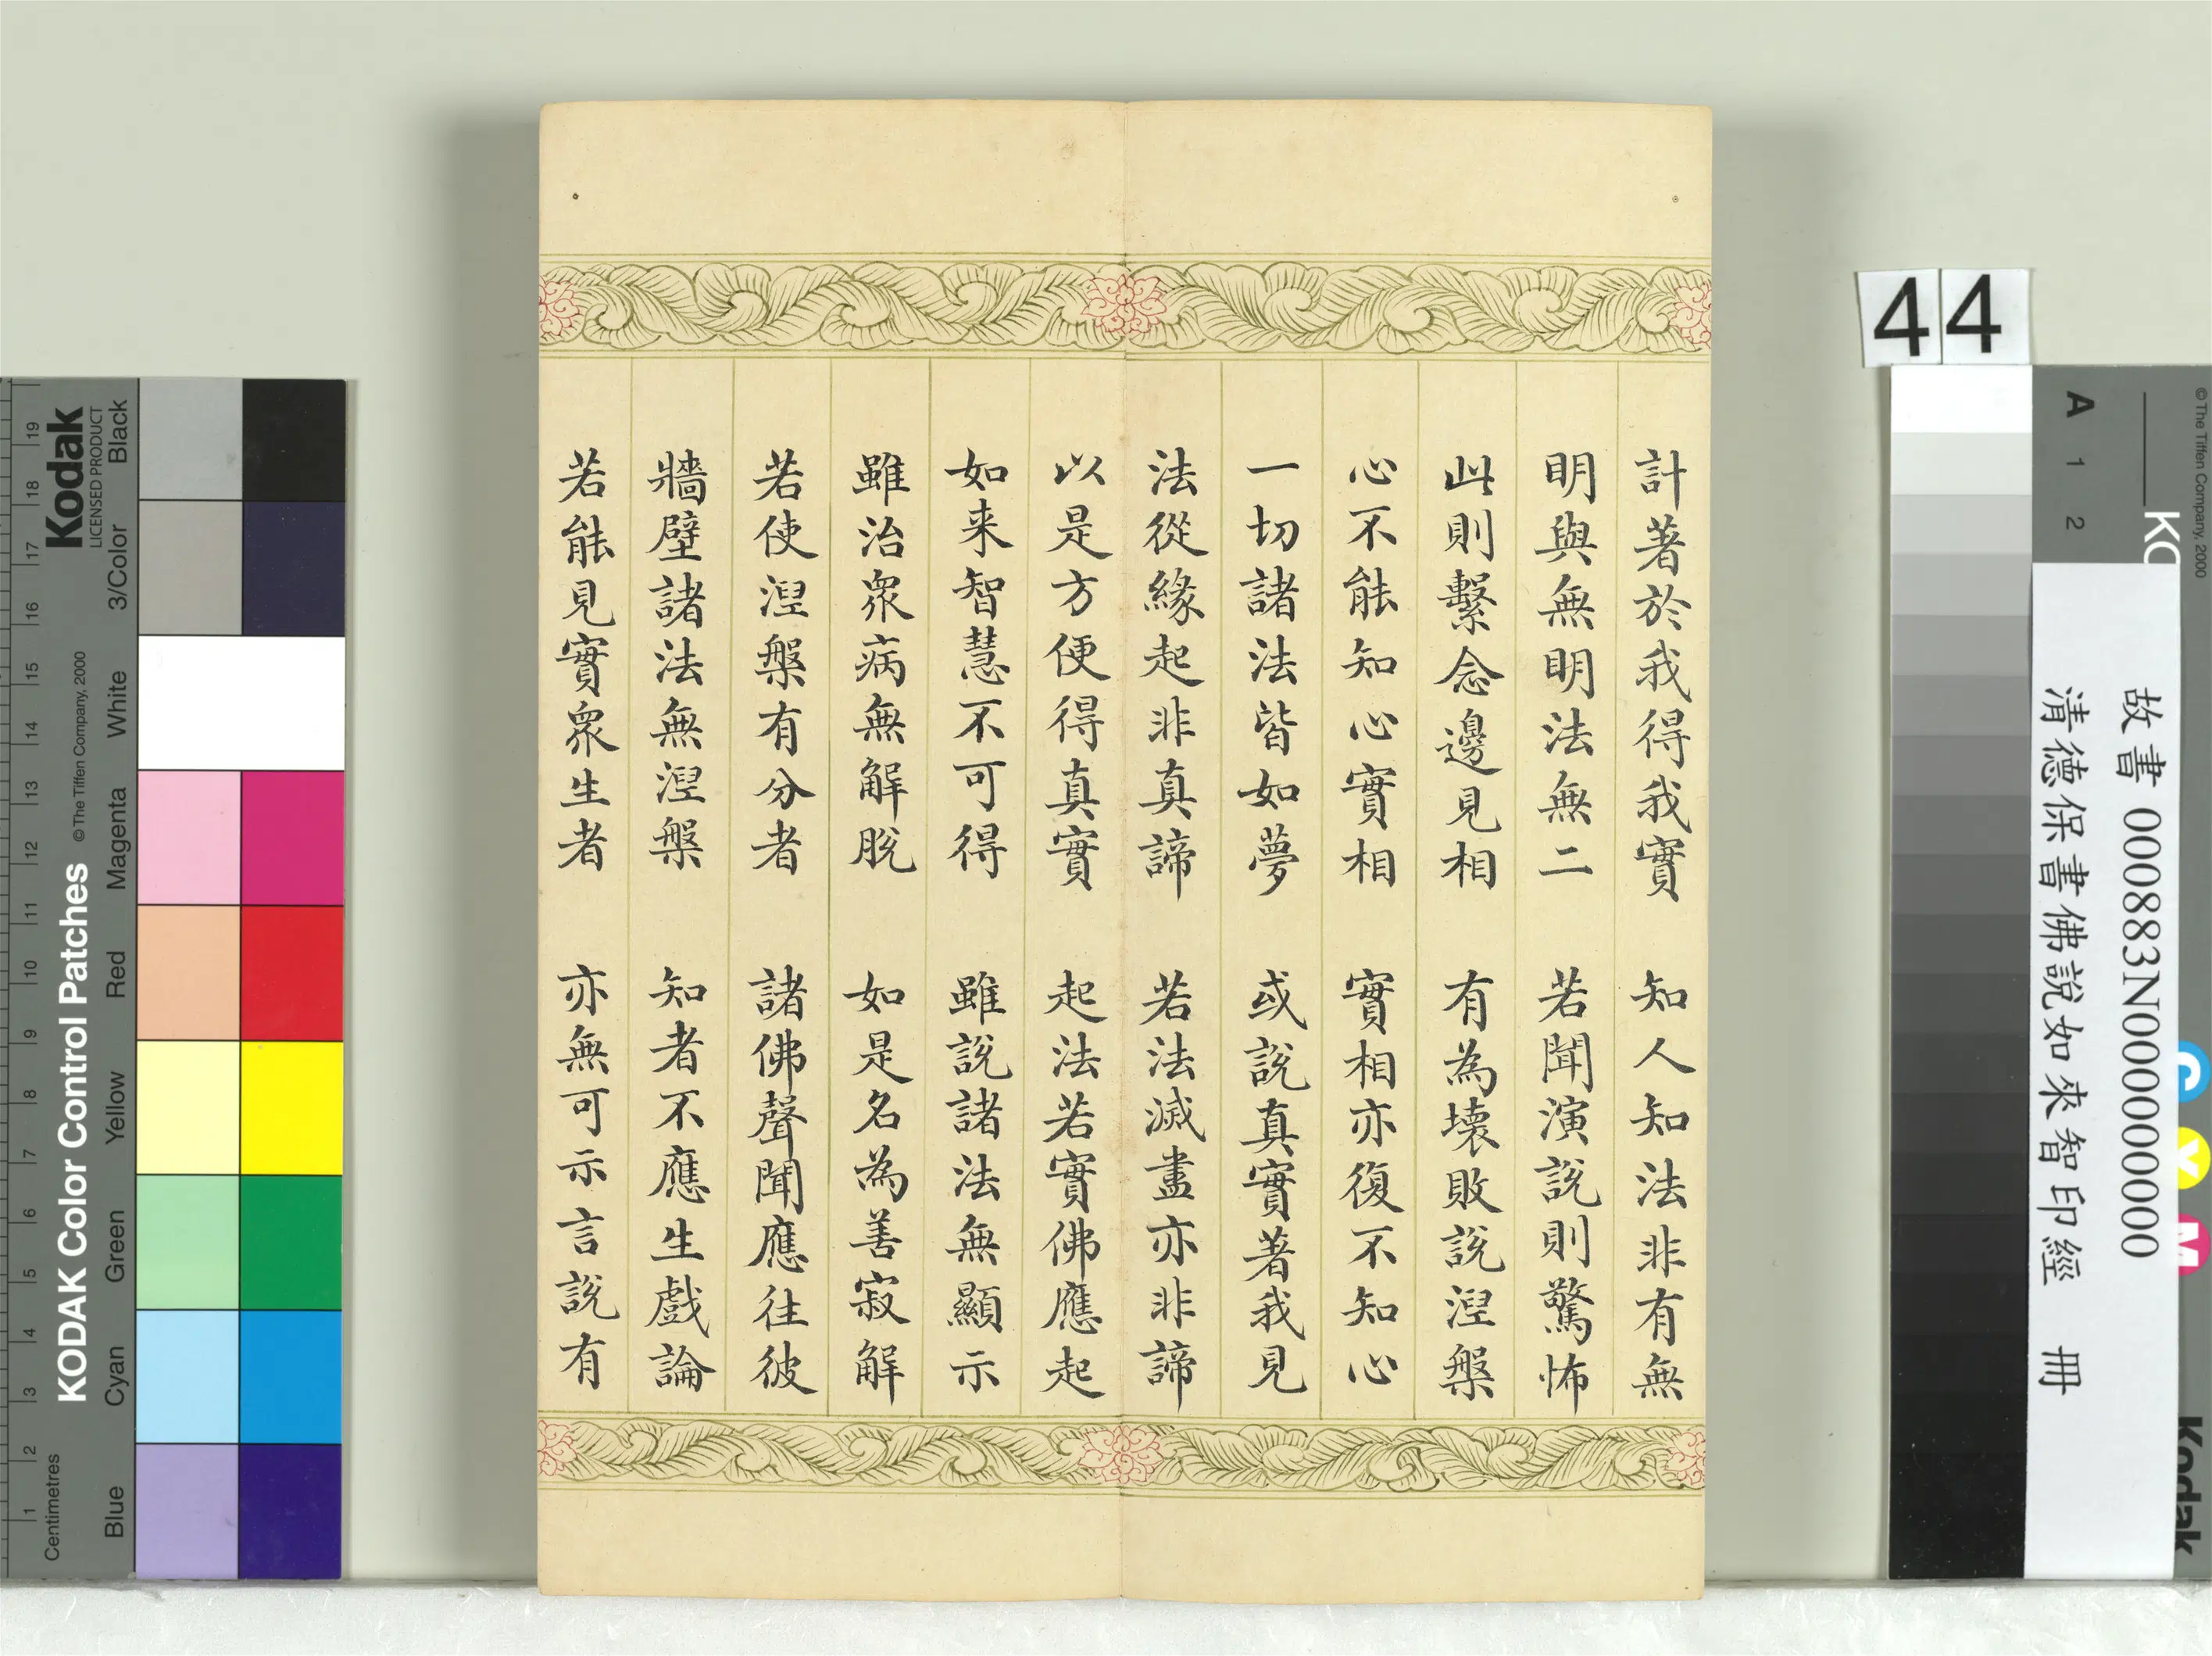 計著於我得我實　知人知法非有無
明與無明法無二　若聞演說則驚怖
此則繫念邊見相　有為壞敗說涅槃
心不能知心實相　實相亦復不知心
一切諸法皆如夢　或說真實著我見
法從緣起非真諦　若法滅盡亦非諦
以是方便得真實　起法若實佛應起
如来智慧不可得　雖說諸法無顯示
雖治衆病無解脫　如是名為善寂解
若使涅槃有分者　諸佛聲聞應往彼
牆壁諸法無涅槃　知者不應生戲論
若能見實衆生者　亦無可示言說有
44
故書 000883N000000000
清德保書佛說如來智印經　冊
KODAK Color Control Patches
Kodak
LICENSED PRODUCT
© The Tiffen Company, 2000
Centimetres
1 2 3 4 5 6 7 8 9 10 11 12 13 14 15 16 17 18 19
Blue
Cyan
Green
Yellow
Red
Magenta
White
3/Color
Black
© The Tiffen Company, 2000
A 1 2
C
Y
M
Kodak